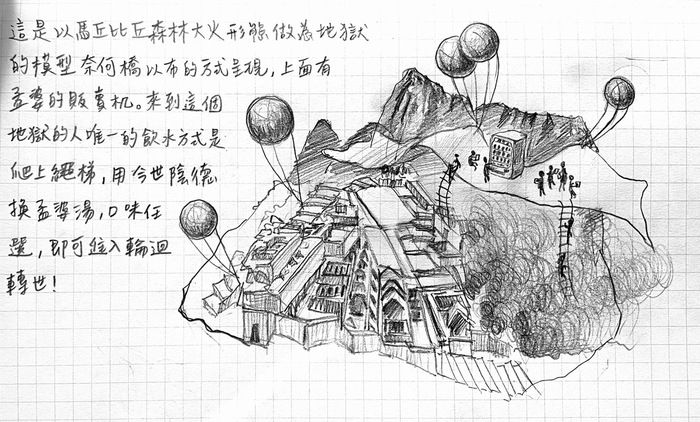 這是以馬丘比丘森林大火形態做為地獄
的模型 奈何橋以布的方式呈現，上面有
孟婆的販賣机。來到這個
地獄的人唯一的飲水方式是
爬上繩梯，用今世陰德
換孟婆湯，口味任
選，即可進入輪迴
轉世！